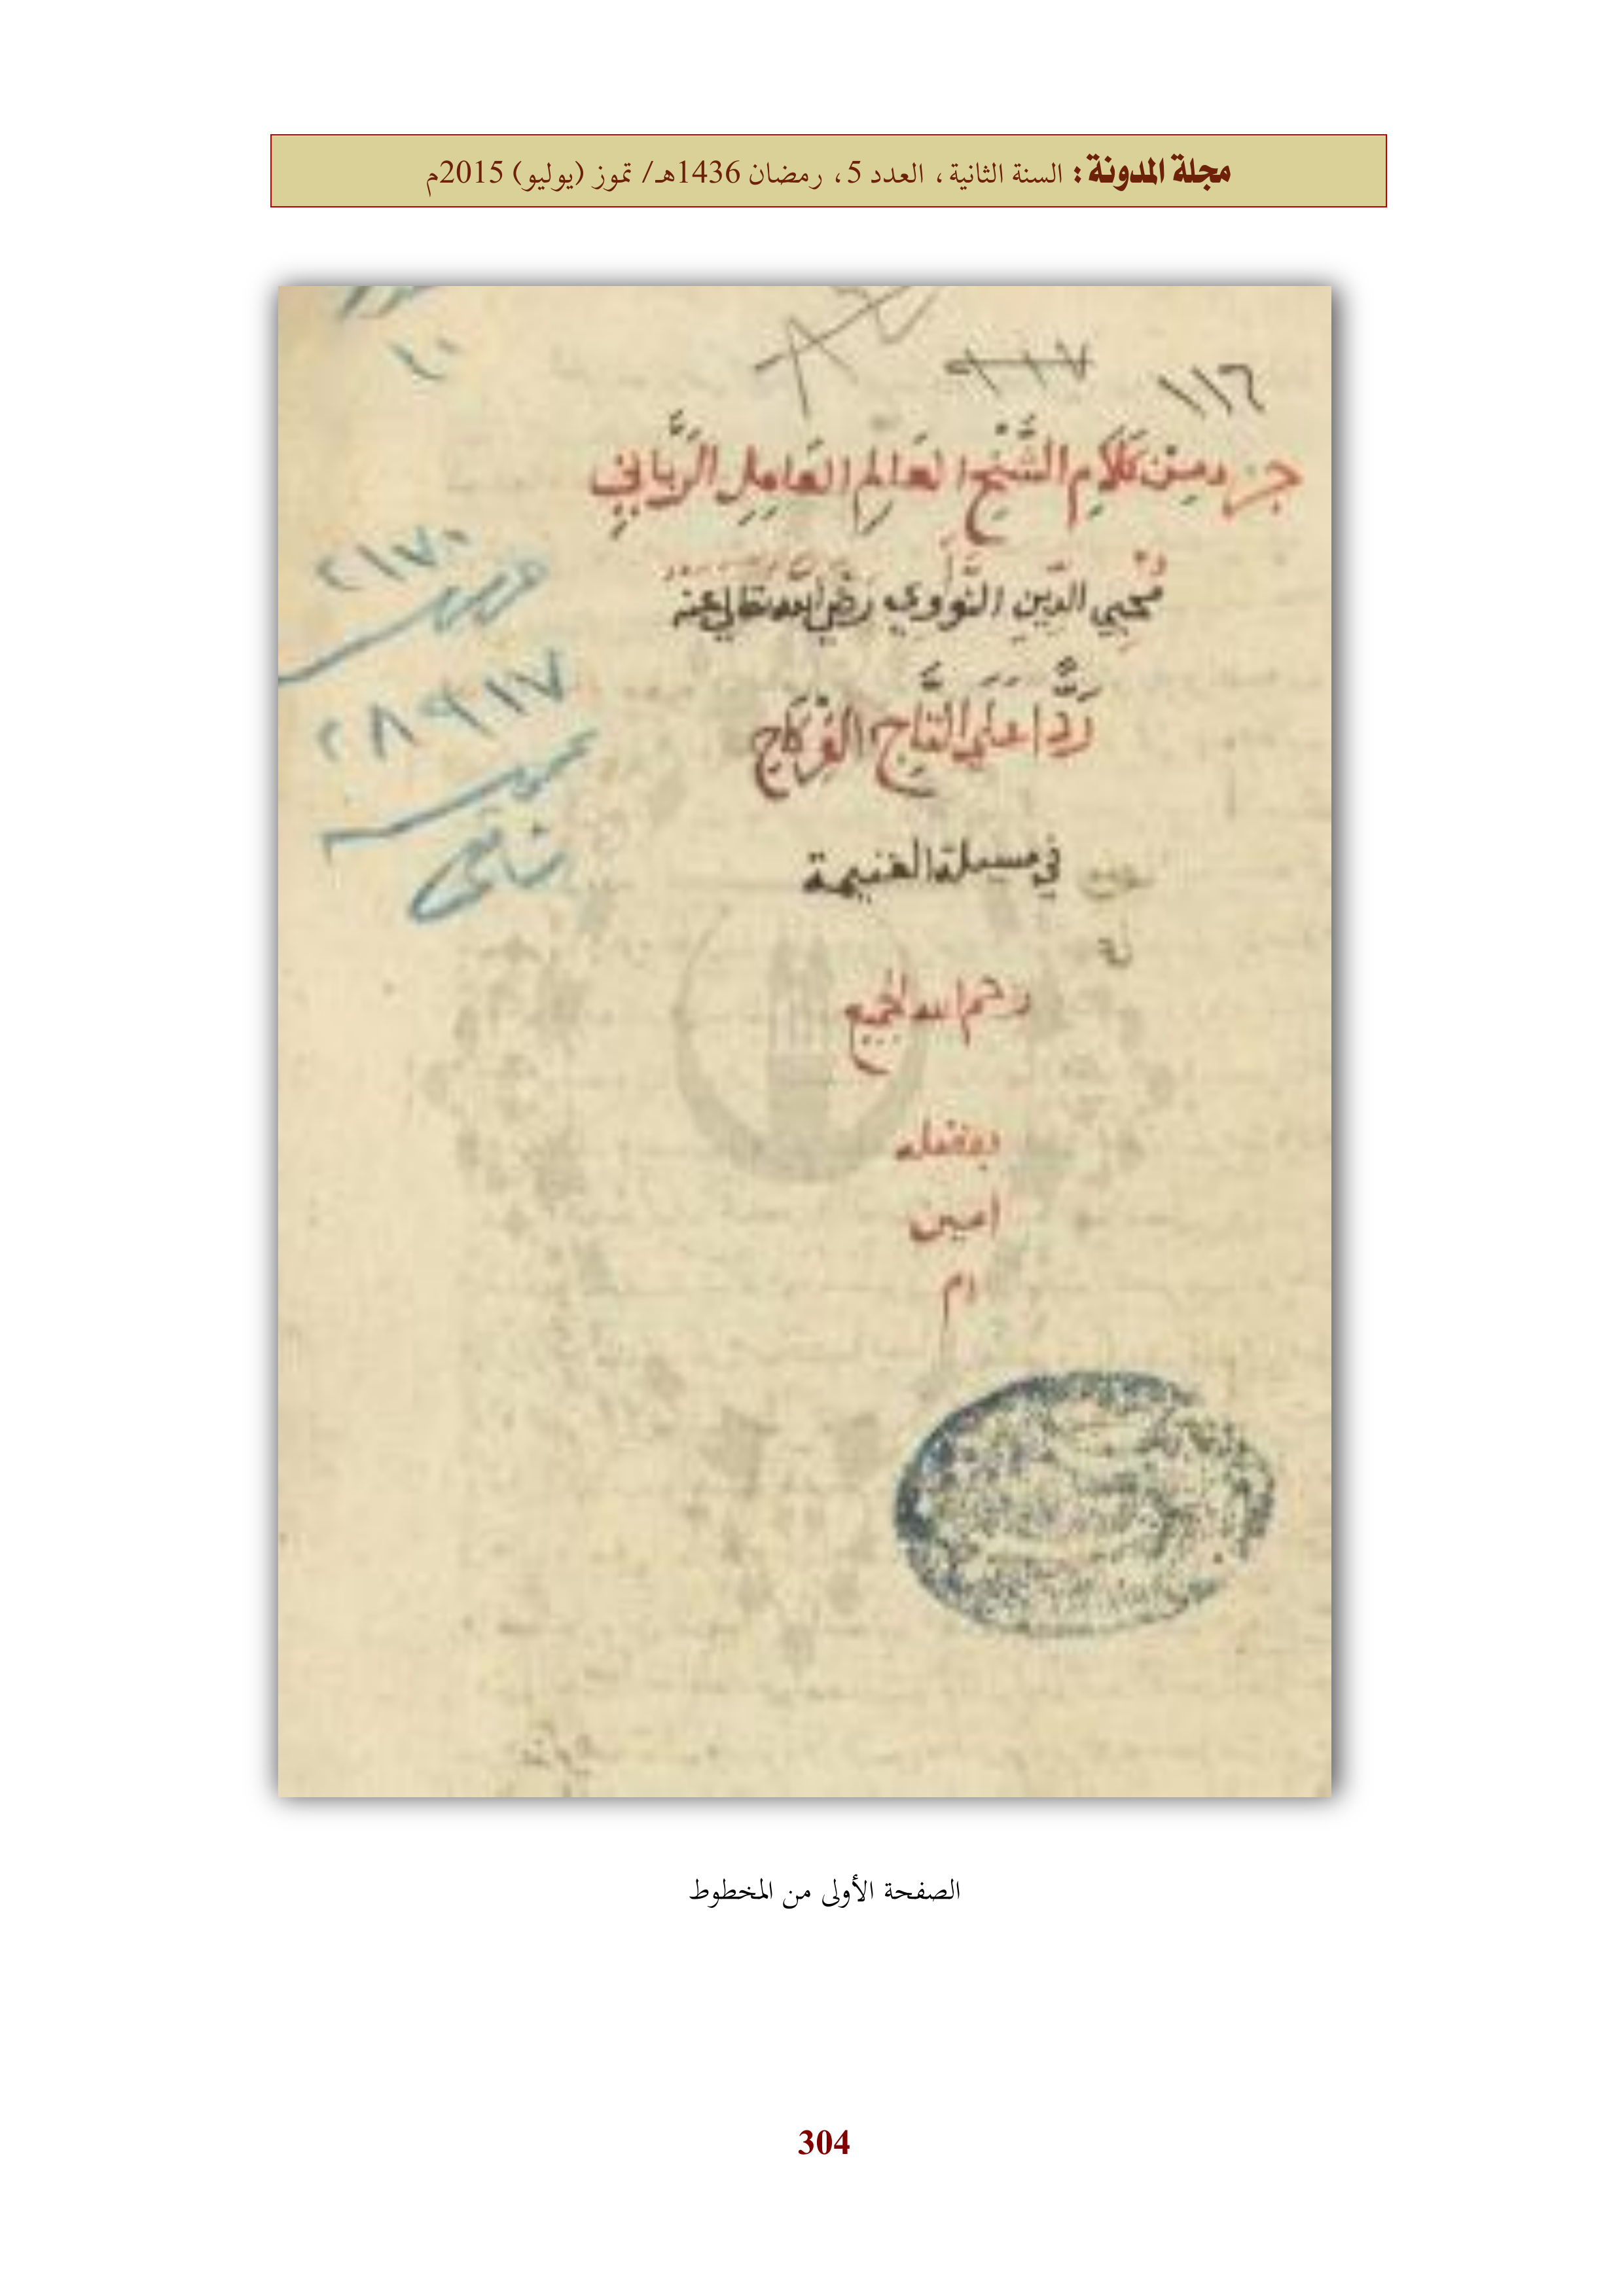 مجلة المدونة : السنة الثانية، العدد 5، رمضان 1436هـ/ تموز (يوليو) 2015م
١٠
١١٦
٩١٧
جزء من كَلَامِ الشَّيْخِ العَالِمِ العَامِلِ الرَّبَّانِي
مُحْيِي الدِّينِ النَّوَوِي رَضِيَ اللَّه تعالى عنه
٢١٧٠
رَدًّا عَلَى التَّاجِ الفَرْكَاح
٢٨٩١٧
في مسيلة الغنيمة
شافعى
لة
رحم الله الجميع
بفضله
امين
ام
الصفحة الأولى من المخطوط
304